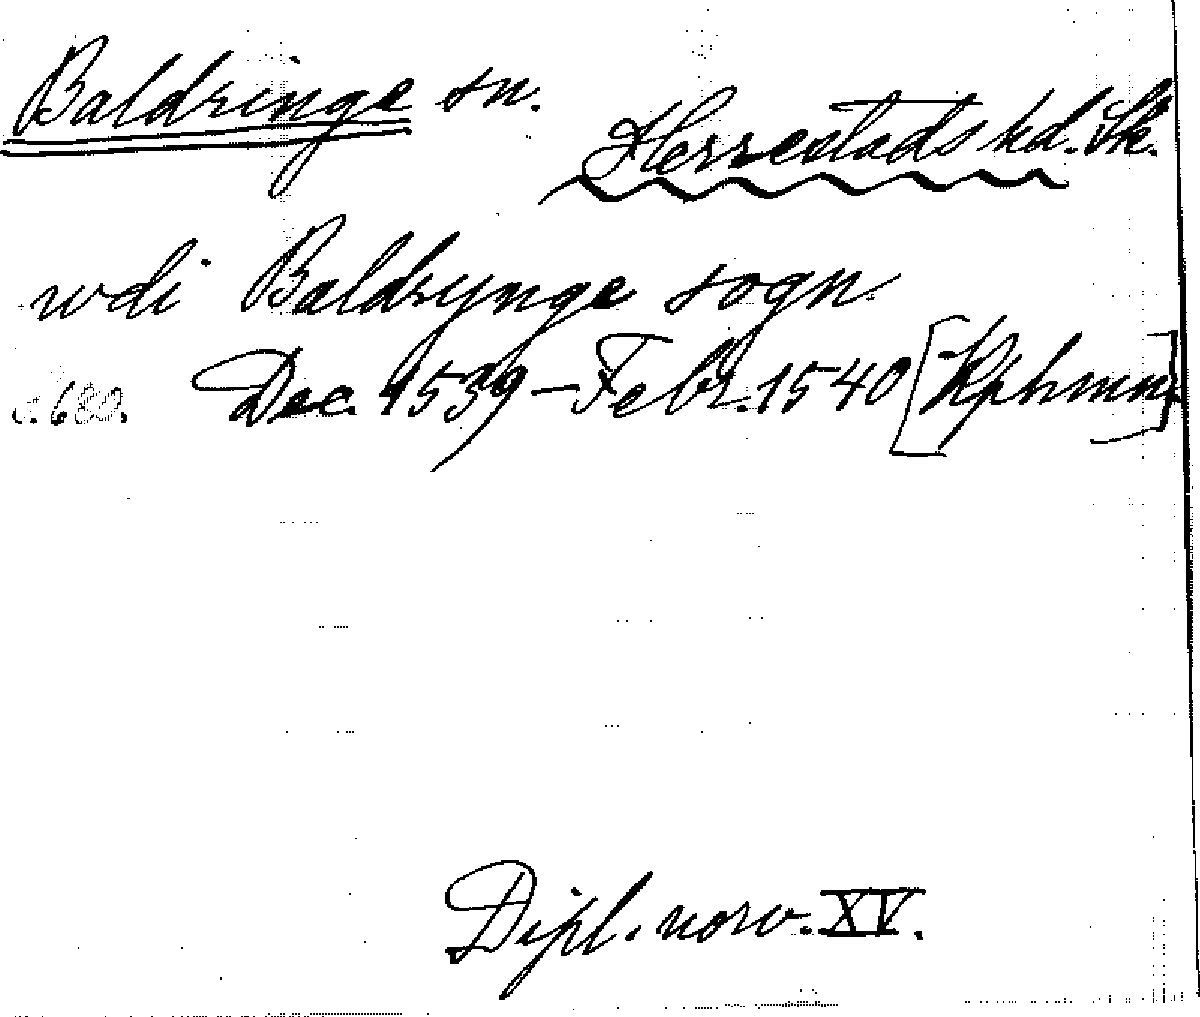 Baldringe sn.
Herrestads hd. Sk.
wdi Baldrynge sogn
s. 680. Dec. 1539 – Febr. 1540 [Kphmn]
Dipl. norv. XV.